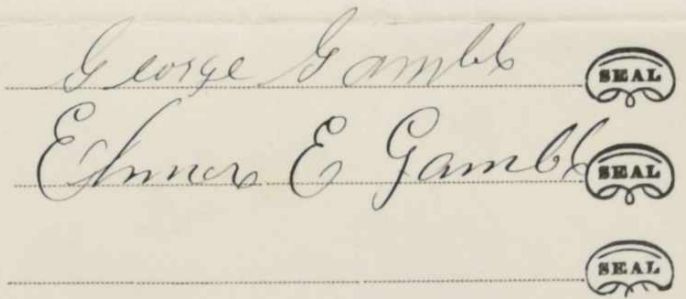 George Gamble SEAL
Elmer E Gamble SEAL
SEAL